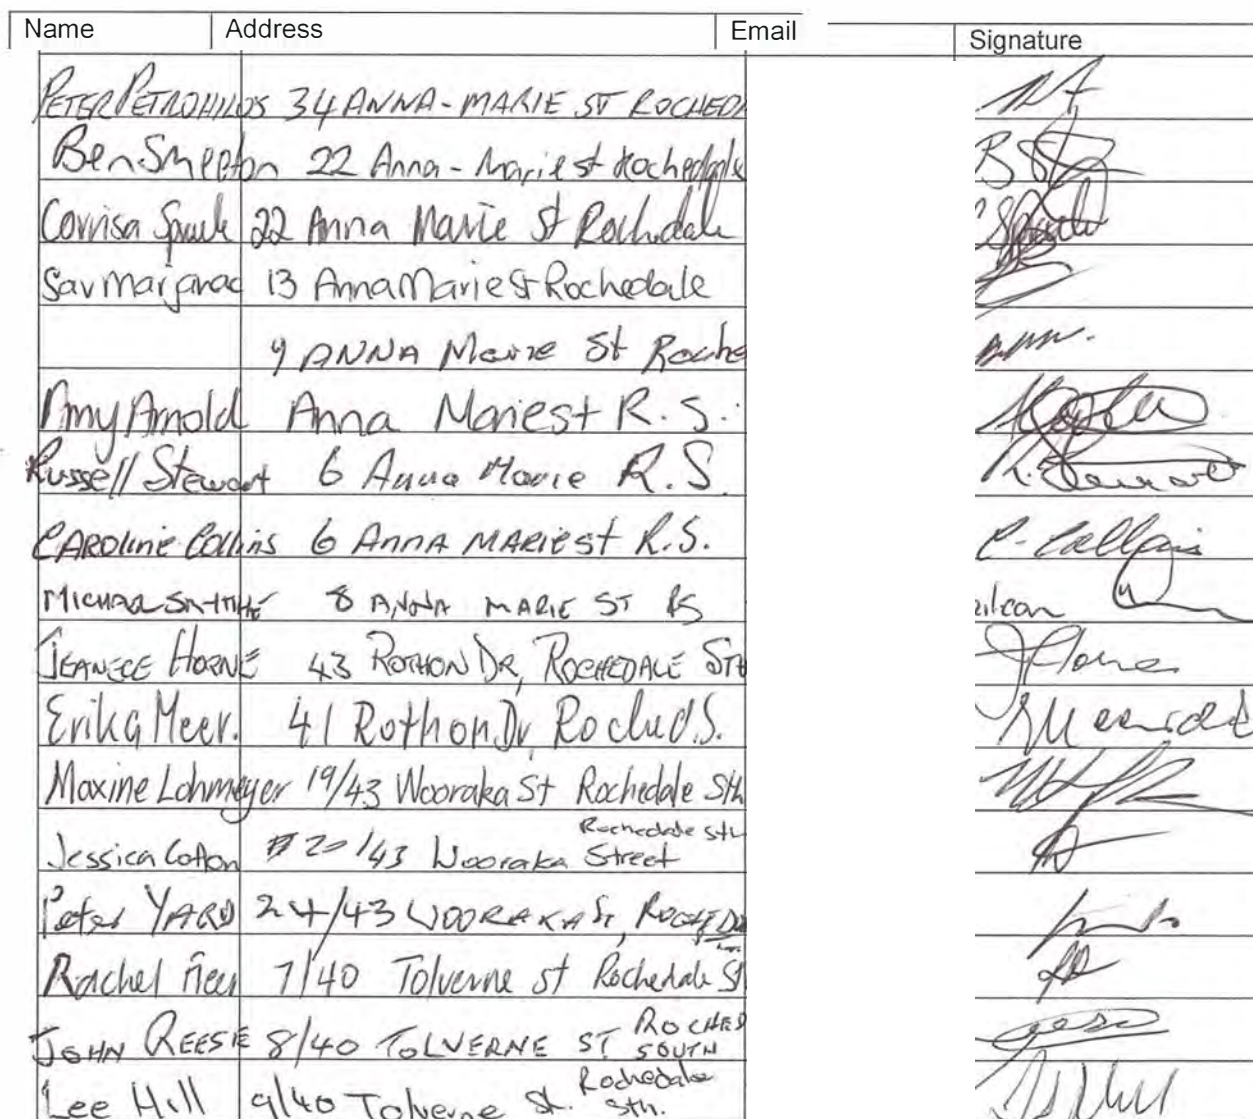 Name Address Email Signature
PETER PETROHILOS 34 ANNA-MARIE ST ROCHEDA
Ben Smeeton 22 Anna-Marie st Rochedale
Corrisa 22 Anna Marie St Rochedale
Sav Marjanac 13 Anna Marie St Rochedale
9 ANNA Marie St Roche
Amy Arnold Anna Marie st R.S.
Russell Stewart 6 Anna Marie R.S. R. Stewart
CAROLINE Collins 6 ANNA MARIE St R.S. C. Collins
MICHAEL 8 ANNA MARIE ST RS
JEANECE HORNE 43 ROTHON DR, ROCHEDALE STH JHorne
Erika Meer. 41 Rothon Dr, Roched S.
Maxine Lohmeyer 19/43 Wooraka St Rochedale Sth
Rochedale sth
Jessica Cotton 20/43 Wooraka Street
Peter YARD 24/43 WOORAKA St, ROCHEDA
Rachel 7/40 Tolverne st Rochedale S
JOHN REESE 8/40 TOLVERNE ST ROCHED
SOUTH
Lee Hill 9/40 Tolverne St. Rochedale
Sth.